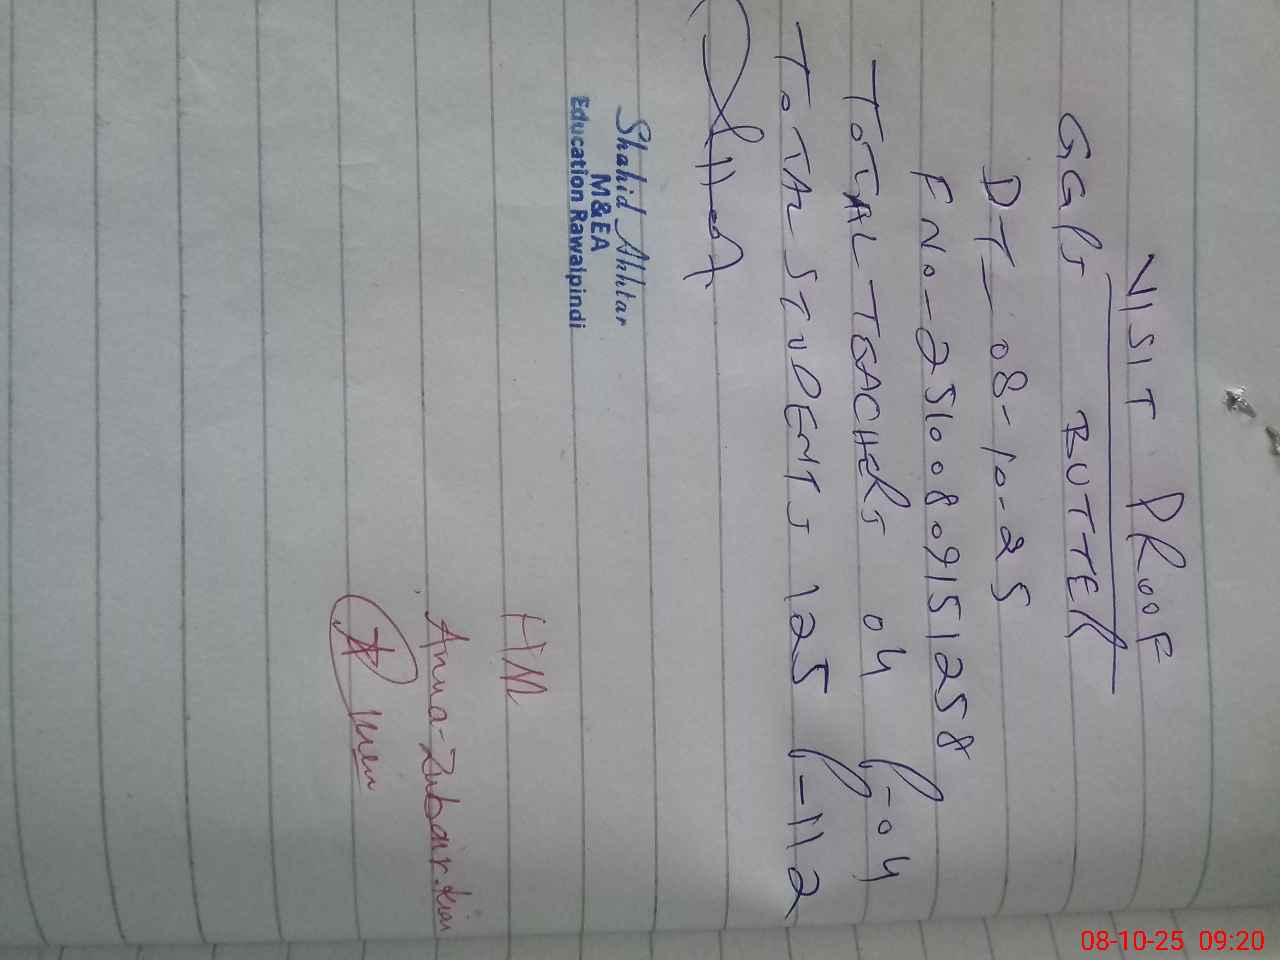 VISIT PROOF
GGPS BUTTER
DT- 08-10-25
F No- 25100809151258
TOTAL TEACHERS 04 P-04
TOTAL STUDENTS 125 P-112
Shahid Akhtar
M&EA
Education Rawalpindi
HM
Anna-Zubair.kiani
08-10-25 09:20